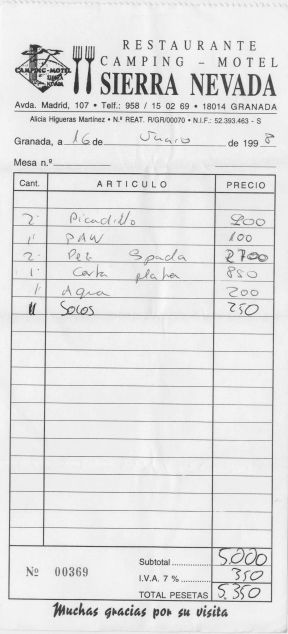 RESTAURANTE
CAMPING - MOTEL
SIERRA NEVADA
CAMPING-MOTEL
SIERRA NEVADA
Avda. Madrid, 107 • Telf.: 958 / 15 02 69 • 18014 GRANADA
Alicia Higueras Martínez • N.º REAT. R/GR/00070 • N.I.F.: 52.393.463 - S
Granada, a 16 de Junio de 1998
Mesa n.º
Cant. ARTICULO PRECIO
2 Picadillo 900
1 PAN 100
2 Pez Spada 2700
1 Carta plata 850
1 Agua 200
Socos 250
Subtotal 5,000
Nº 00369 I.V.A. 7 % 350
TOTAL PESETAS 5,350
Muchas gracias por su visita